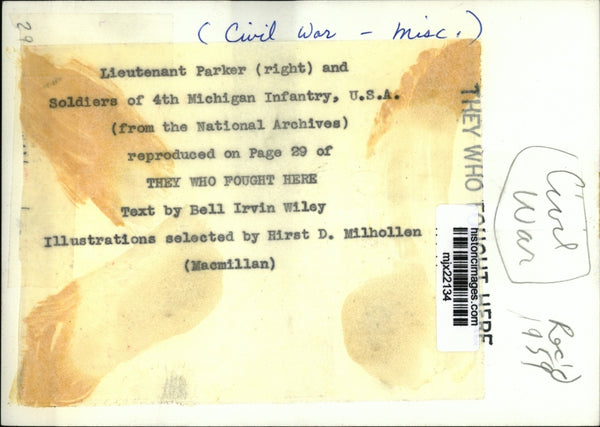 29
(Civil War - Misc.)
Lieutenant Parker (right) and
Soldiers of 4th Michigan Infantry, U.S.A.
(from the National Archives)
reproduced on Page 29 of
THEY WHO FOUGHT HERE
Text by Bell Irvin Wiley
Illustrations selected by Hirst D. Milhollen
(Macmillan)
THEY WHO FOUGHT HERE
historicimages.com
mjx22134
Civil
War
Rec'd
1959